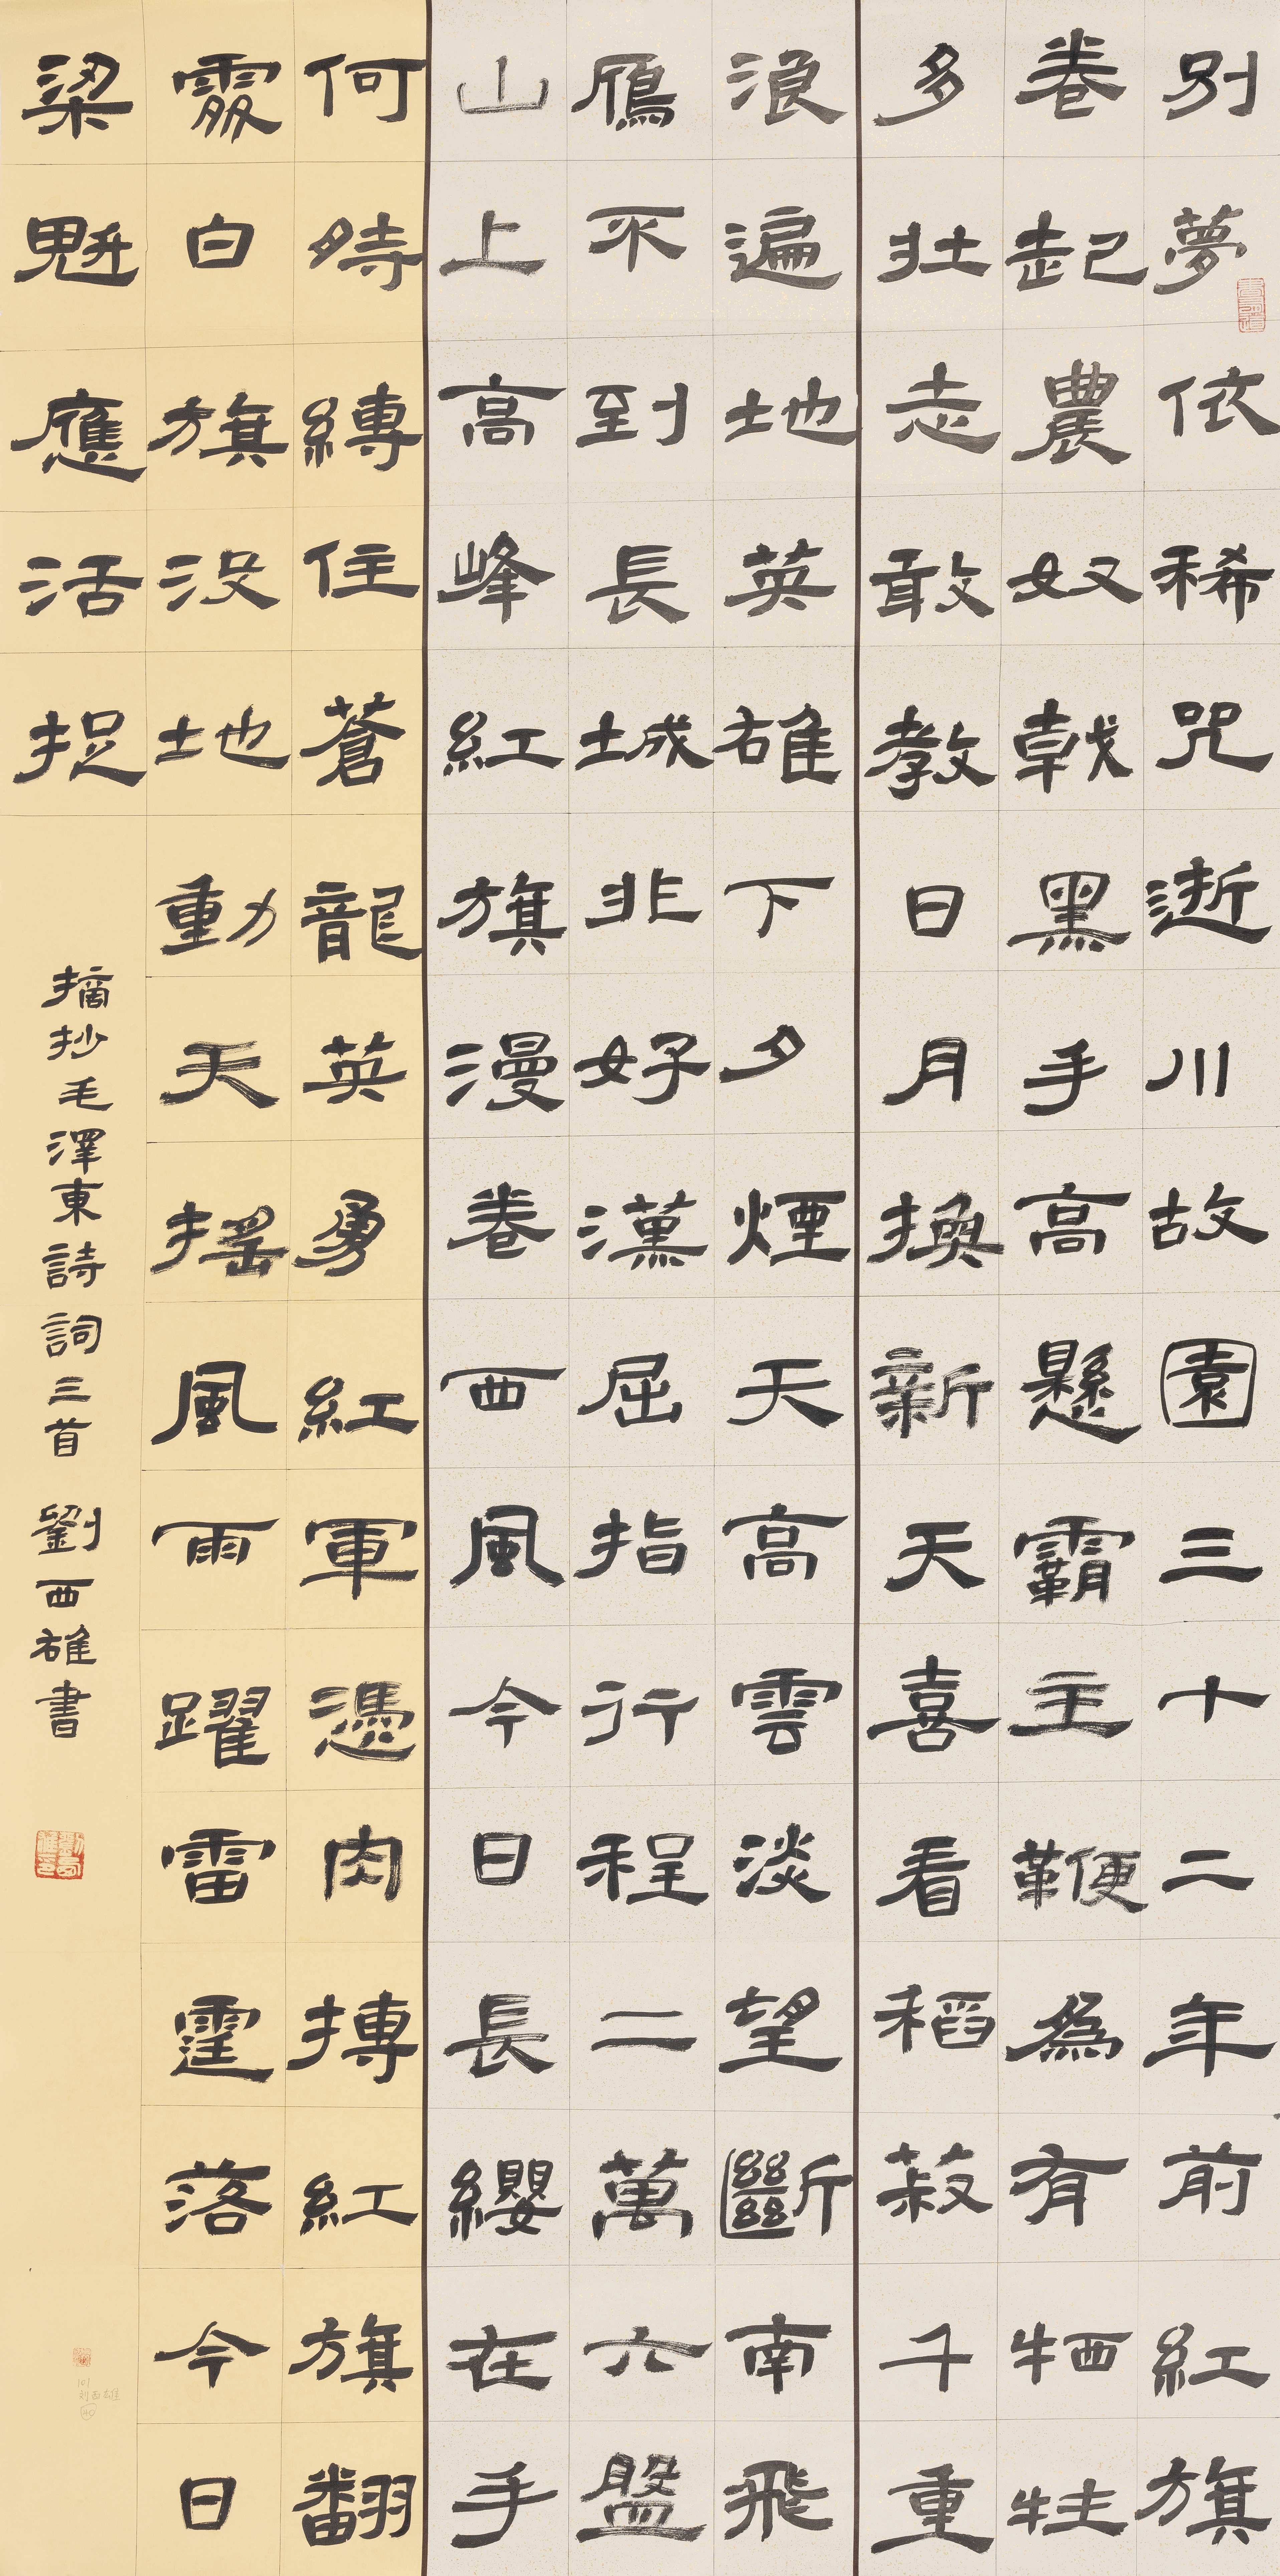 別夢依稀咒逝川故園三十二年前紅旗
卷起農奴戟黑手高懸霸主鞭為有犧牲
多壮志敢教日月換新天喜看稻菽千重
浪遍地英雄下夕煙天高雲淡望斷南飛
鴈不到長城非好漢屈指行程二萬六盤
山上高峰紅旗漫卷西風今日長纓在手
何時縛住蒼龍英勇紅軍憑肉搏紅旗翻
處白旗沒地動天搖風雨躍雷霆落今日
梁魁應活捉
摘抄毛澤東詩詞三首 劉西雄書
101
刘西雄